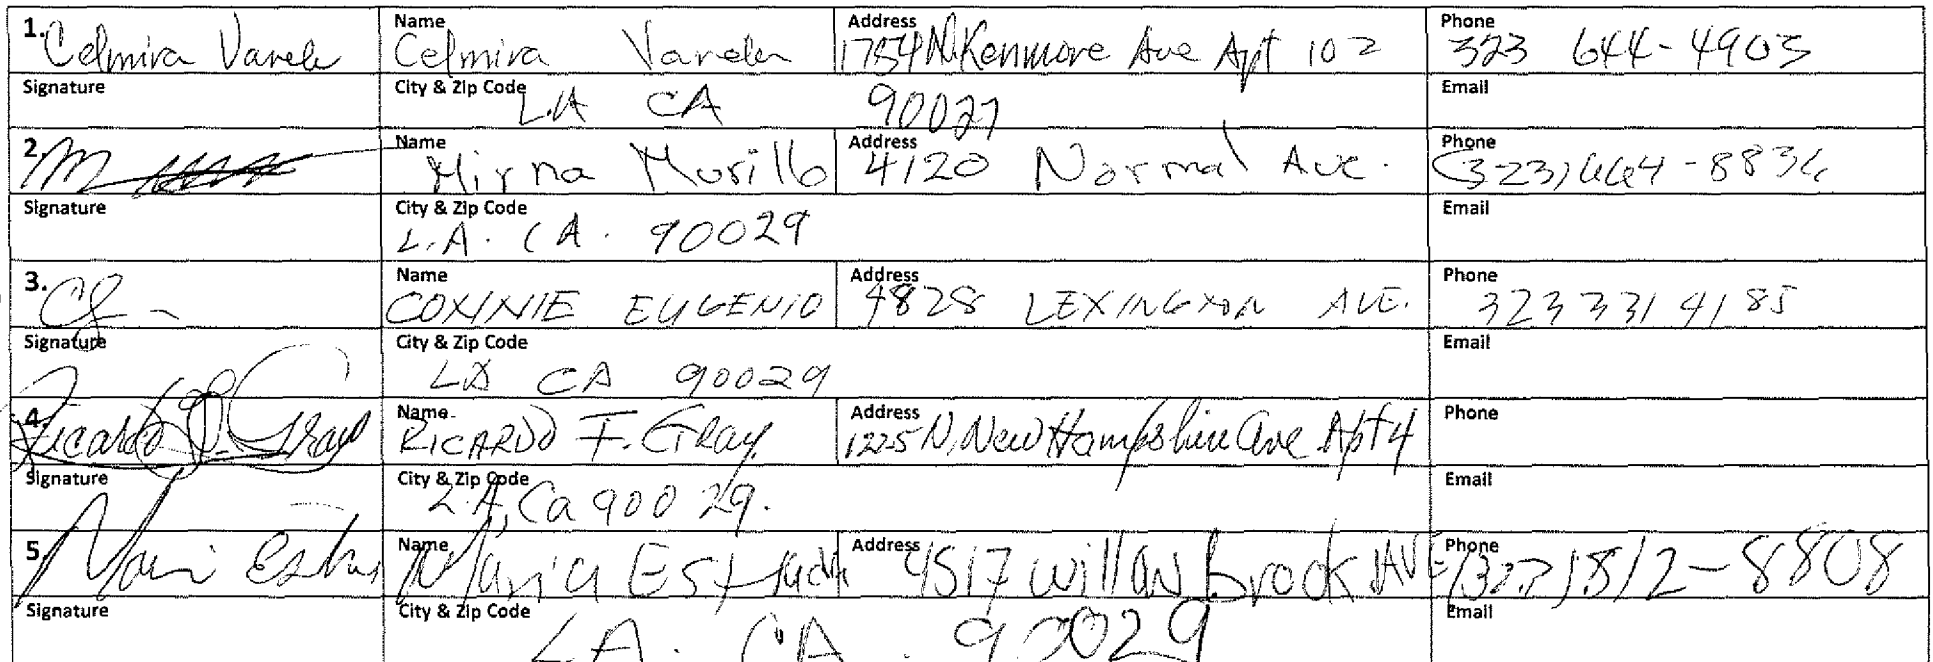 1. Celmira Varela Name Celmira Varela Address 1754 N. Kenmore Ave Apt 102 Phone 323 644-4903
Signature City & Zip Code L.A CA 90027 Email
2. Name Mirna Murillo Address 4120 Normal Ave. Phone (323) 664-8836
Signature City & Zip Code L.A. CA. 90029 Email
3. Name CONNIE EUGENIO Address 4828 LEXINGTON AVE. Phone 323 331 4185
Signature City & Zip Code LA CA 90029 Email
4. Ricardo F. Gray Name RICARDO F. Gray Address 1225 N. New Hampshire Ave Apt 4 Phone
Signature City & Zip Code L.A, Ca 90029. Email
5. Name Maria Address 4517 Willow brook AVE Phone (323) 812-8808
Signature City & Zip Code LA. CA. 90029 Email